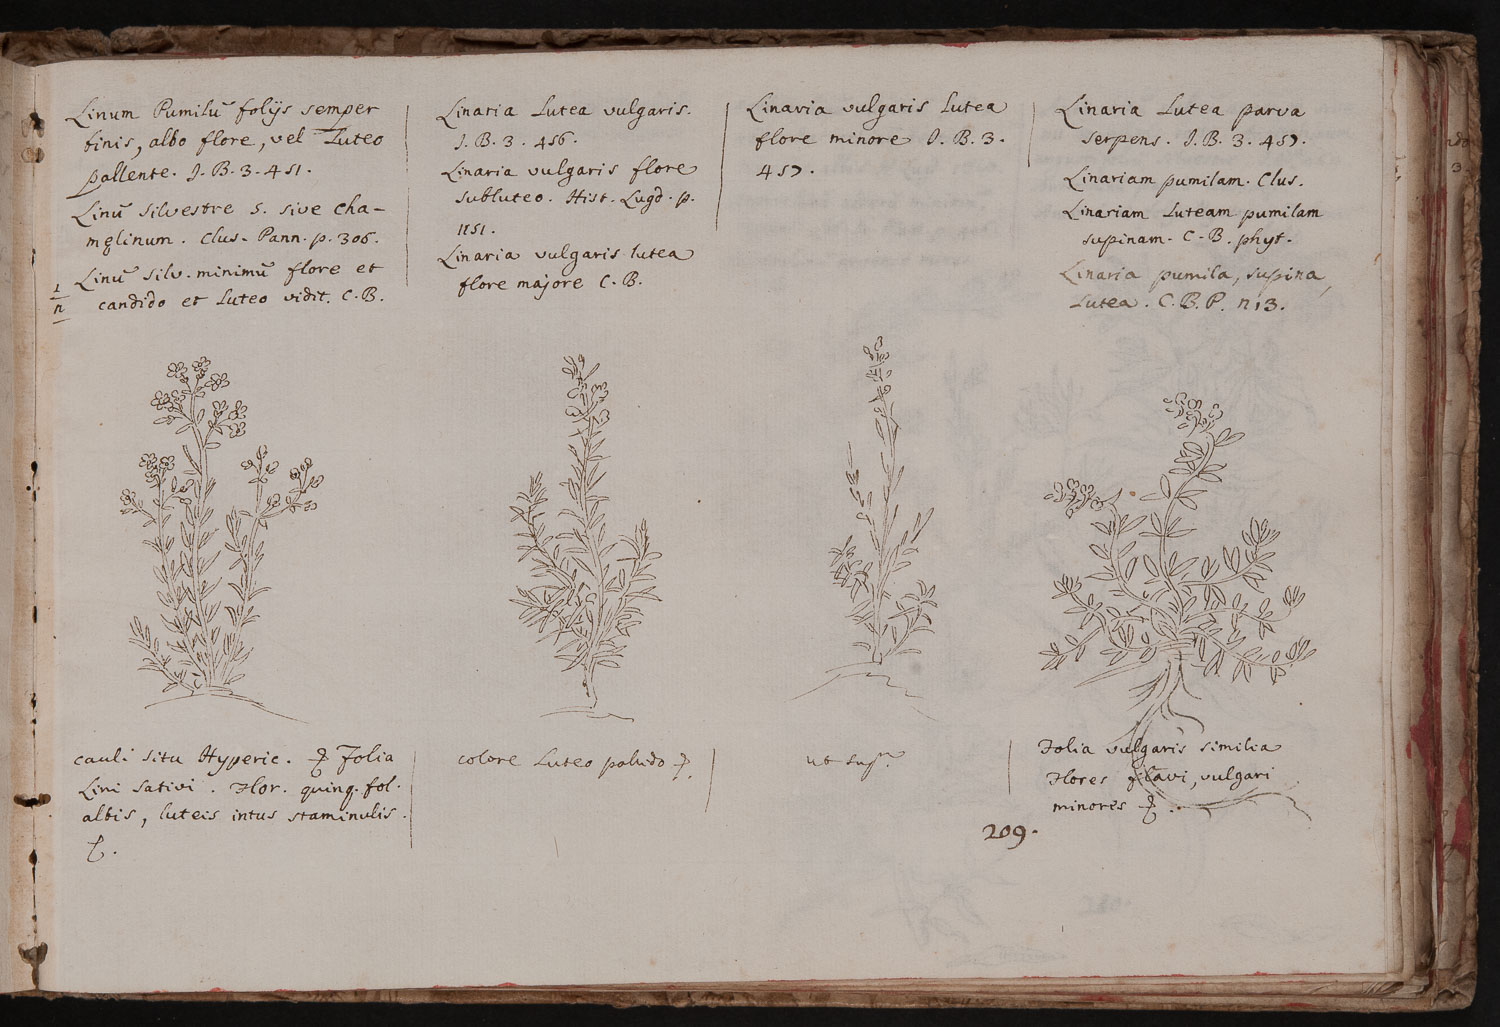 Linum Pumilū folijs semper
finis, albo flore, vel Luteo
pallente. J. B. 3. 451.
Linū silvestre 5. sive cha-
męlinum. Clus. Pann. p. 306.
Linū silv. minimū flore et
candido et luteo vidit. C. B.
1
n
Linaria Lutea vulgaris.
J. B. 3. 456.
Linaria vulgaris flore
subluteo. Hist. Lugd. p.
1151.
Linaria vulgaris lutea
flore majore C. B.
Linaria vulgaris lutea
flore minore J. B. 3.
457.
Linaria Lutea parva
serpens. J. B. 3. 457.
Linariam pumilam. Clus.
Linariam Luteam pumilam
supinam. C. B. phyt.
Linaria pumila, supina,
Lutea. C. B. P. n 13.
cauli situ Hyperic. Folia
Lini sativi. Flor. quinq. fol.
albis, luteis intus staminulis.
colore Luteo pallido
ut supᵃ
Folia vulgaris similia
Flores flavi, vulgari
minores
209.